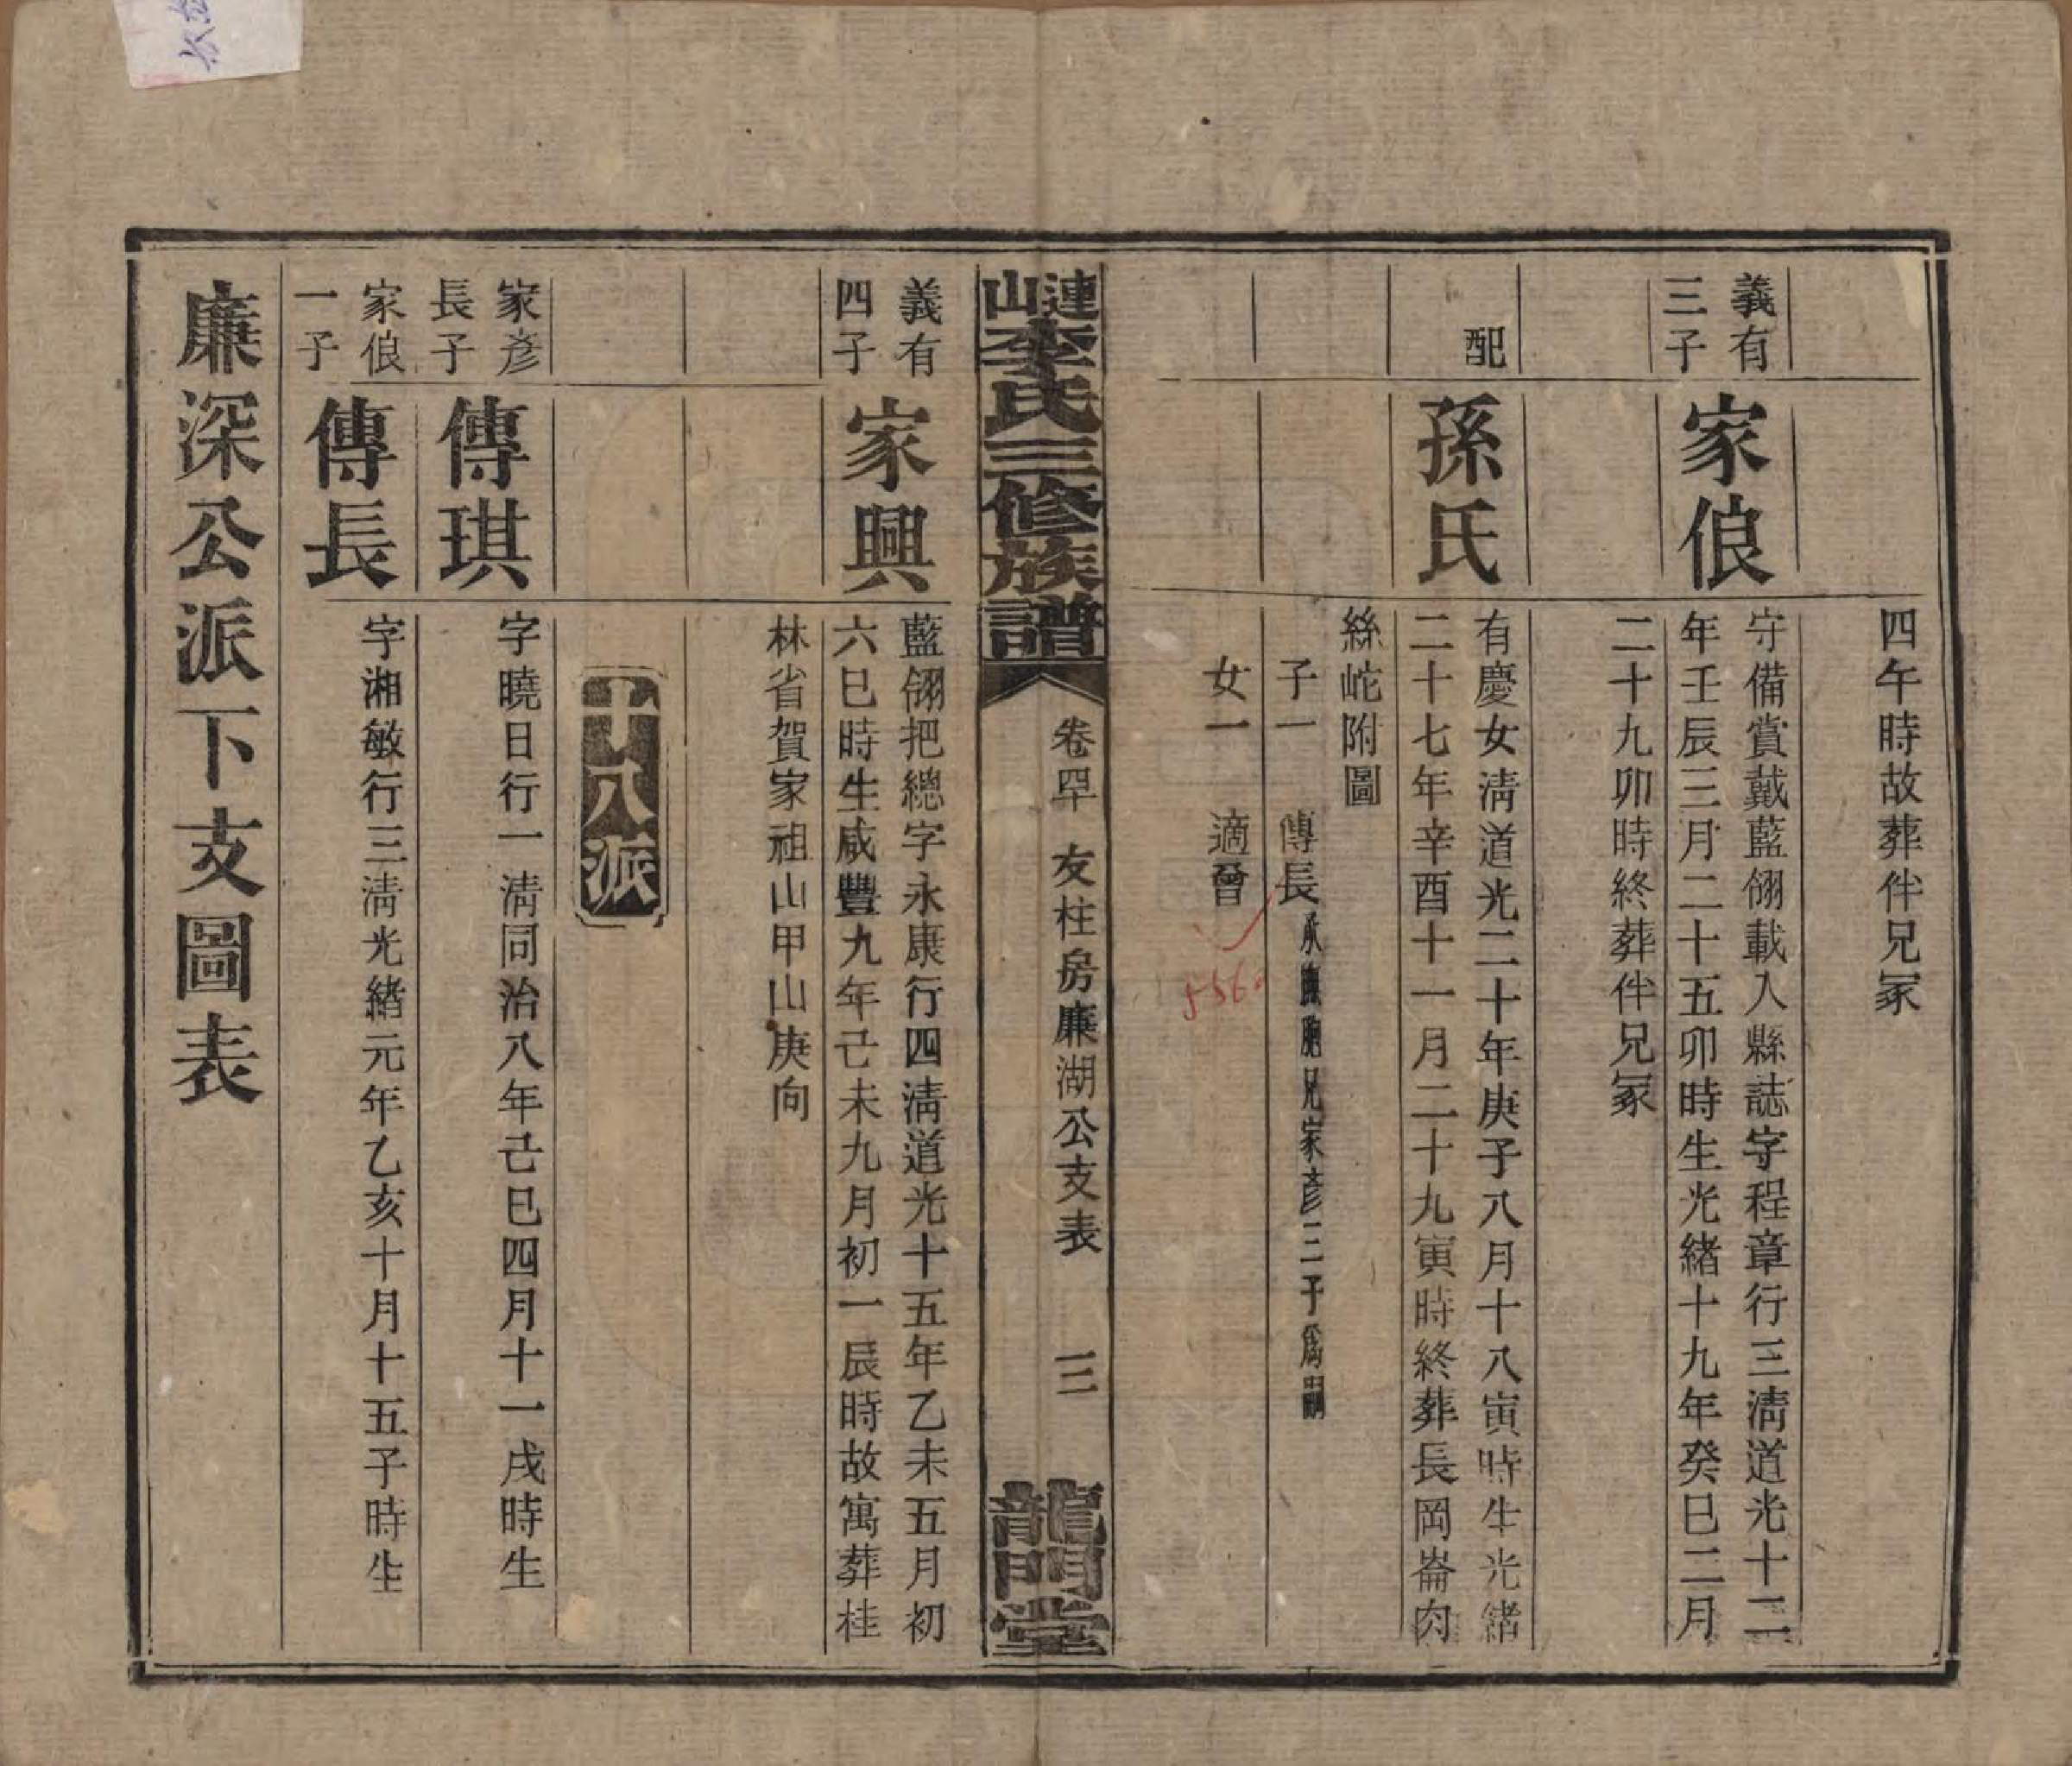 四午時故葬伴兄冢
義有
三子
家俍
守備賞戴藍翎載入縣誌字程章行三清道光十二
年壬辰三月二十五卯時生光緒十九年癸巳二月
二十九卯時終葬伴兄冢
配
孫氏
有慶女清道光二十年庚子八月十八寅時生光緒
二十七年辛酉十一月二十九寅時終葬長岡崙內
絲蛇附圖
子一 傳長 承撫胞兄家彥三子為嗣
女一 適晉
漣山李氏三修族譜
卷四卒 友柱房廉湖公支表 三
龍門堂
義有
四子
家興
藍翎把總字永康行四清道光十五年乙未五月初
六巳時生咸豐九年己未九月初一辰時故寓葬桂
林省賀家祖山甲山庚向
十八派
家彥
長子
傳琪
字曉日行一清同治八年己巳四月十一戌時生
家俍
一子
傳長
字湘敏行三清光緒元年乙亥十月十五子時生
廉深公派下支圖表